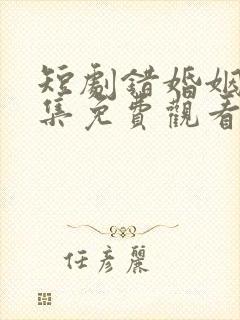 短劇錯婚姻
集免費觀看
任彥麗